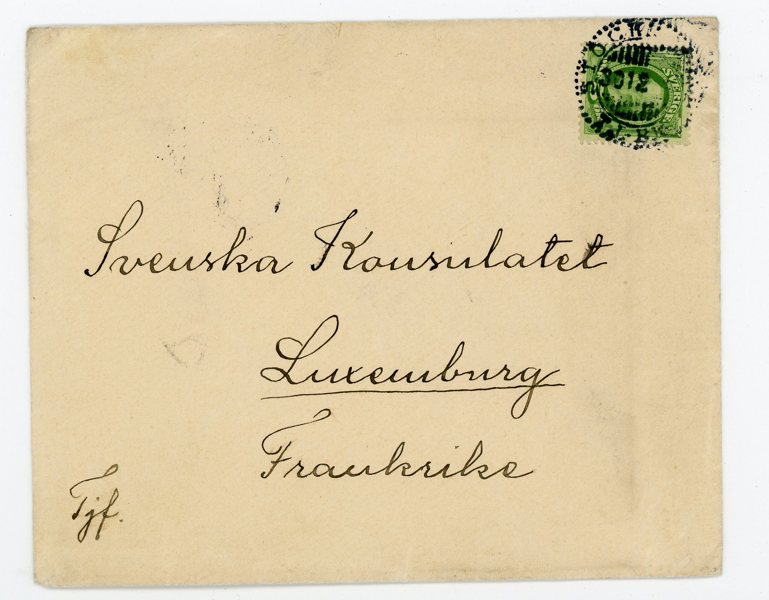 STOCKH
3012
SVERIGE
Svenska Konsulatet
Luxemburg
Frankrike
Tjf.